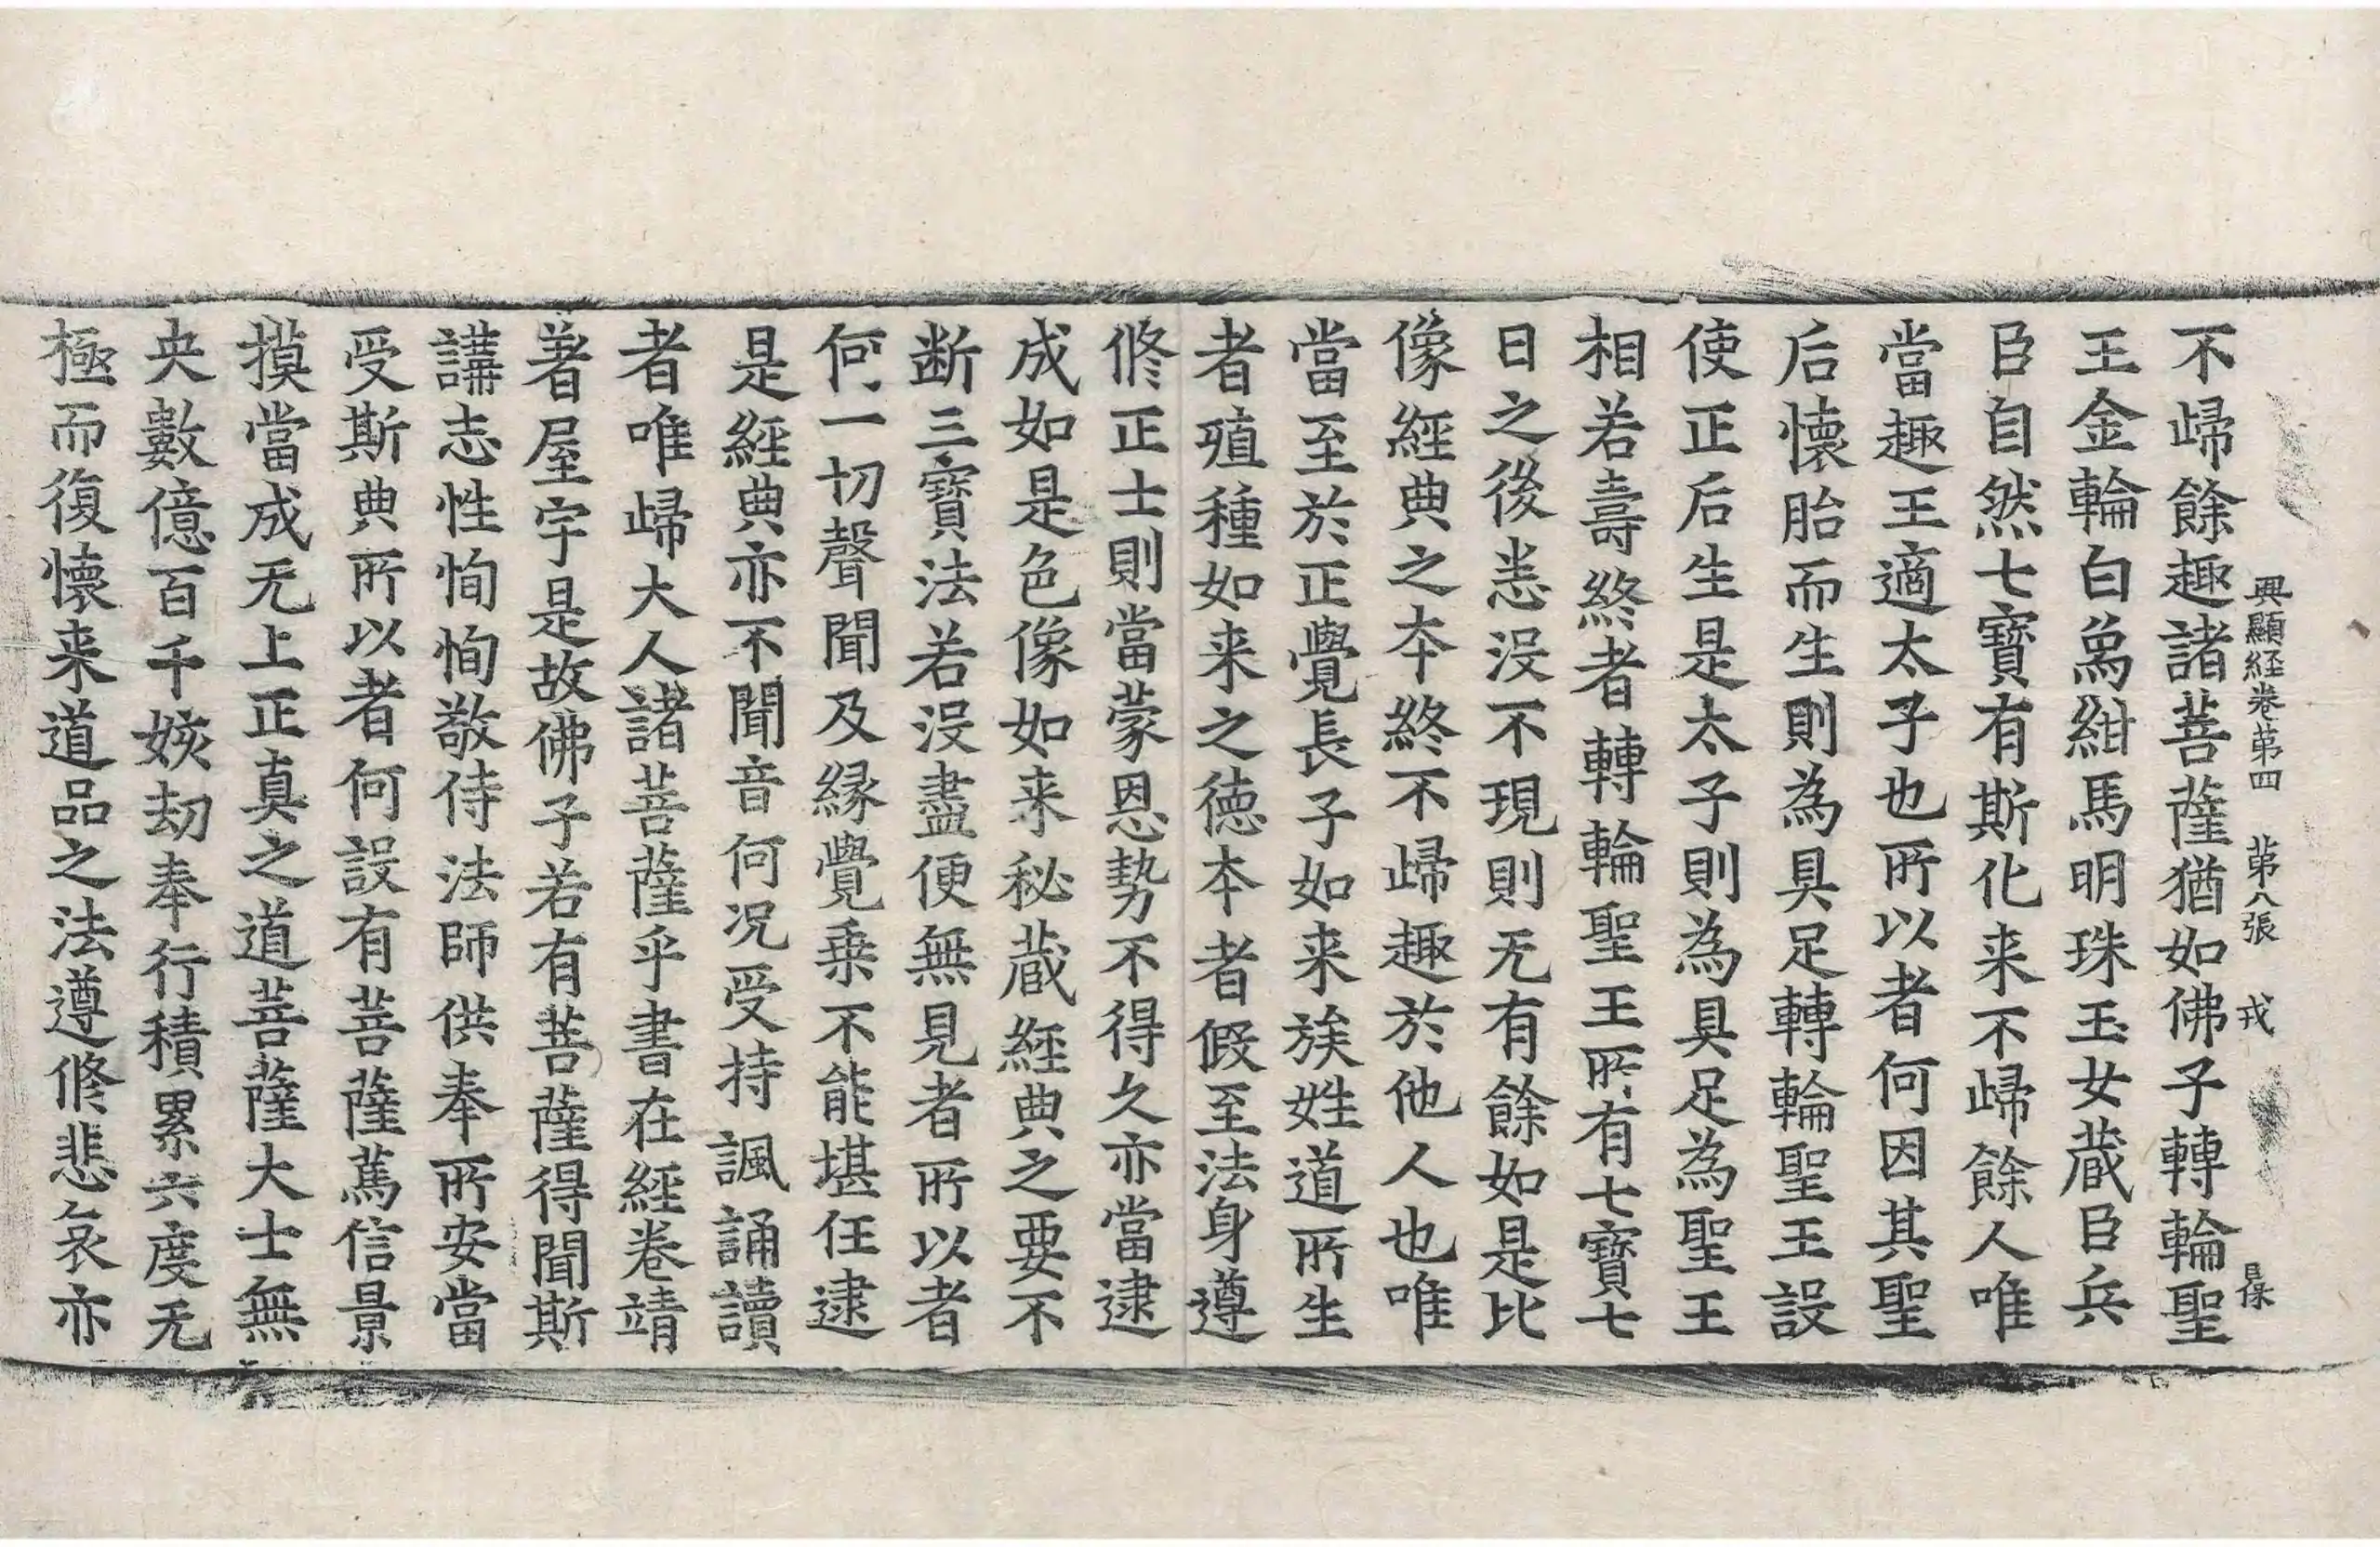 興顯経卷第四　第八張　戎　㬅
不歸餘趣諸菩薩猶如佛子轉輪聖
王金輪白象紺馬明珠玉女蔵臣兵
臣自然七寶有斯化来不歸餘人唯
當趣王適太子也所以者何因其聖
后懷胎而生則為具足轉輪聖王設
使正后生是太子則為具足為聖王
相若壽終者轉輪聖王所有七寶七
日之後悉没不現則无有餘如是比
像經典之本終不歸趣於他人也唯
當至於正覺長子如来族姓道所生
者殖種如来之徳本者假至法身遵
修正士則當蒙恩勢不得久亦當逮
成如是色像如来秘蔵經典之要不
断三寶法若没盡便無見者所以者
何一切聲聞及縁覺乗不能堪任逮
是經典亦不聞音何況受持諷誦讀
者唯歸大人諸菩薩乎書在經卷靖
著屋宇是故佛子若有菩薩得聞斯
講志性恂恂敬侍法師供奉所安當
受斯典所以者何設有菩薩篤信景
摸當成无上正真之道菩薩大士無
央數億百千姟劫奉行積累六度无
極而復懷来道品之法遵修悲哀亦